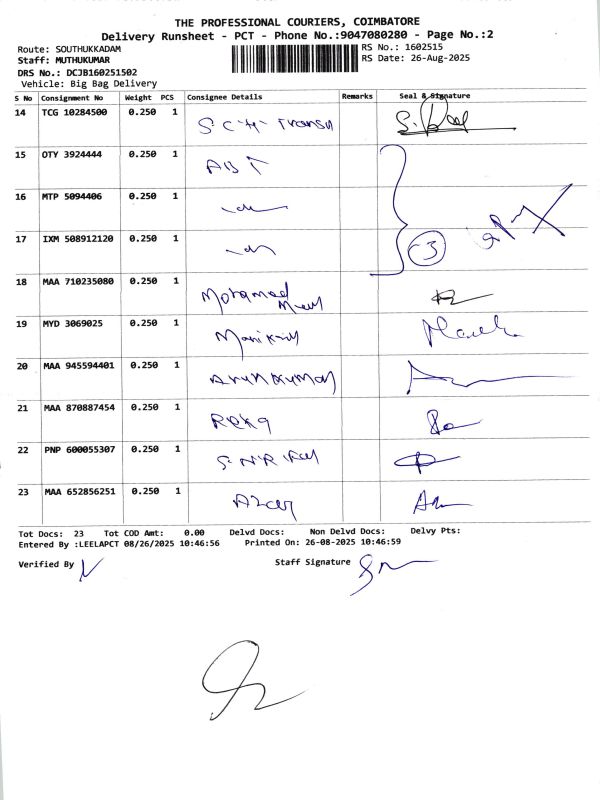 THE PROFESSIONAL COURIERS, COIMBATORE
Delivery Runsheet - PCT - Phone No.:9047080280 - Page No.:2
Route: SOUTHUKKADAM
RS No.: 1602515
Staff: MUTHUKUMAR
RS Date: 26-Aug-2025
DRS No.: DCJB160251502
Vehicle: Big Bag Delivery
S No Consignment No Weight PCS Consignee Details Remarks Seal & Signature
14 TCG 10284500 0.250 1 S C H Transn
15 OTY 3924444 0.250 1 ABT
16 MTP 5094406 0.250 1
17 IXM 508912120 0.250 1
3
18 MAA 710235080 0.250 1 Mohamed
19 MYD 3069025 0.250 1
20 MAA 945594401 0.250 1 Arunkumar
21 MAA 870887454 0.250 1 Reka
22 PNP 600055307 0.250 1
23 MAA 652856251 0.250 1
Tot Docs: 23 Tot COD Amt: 0.00 Delvd Docs: Non Delvd Docs: Delvy Pts:
Entered By :LEELAPCT 08/26/2025 10:46:56 Printed On: 26-08-2025 10:46:59
Verified By Staff Signature